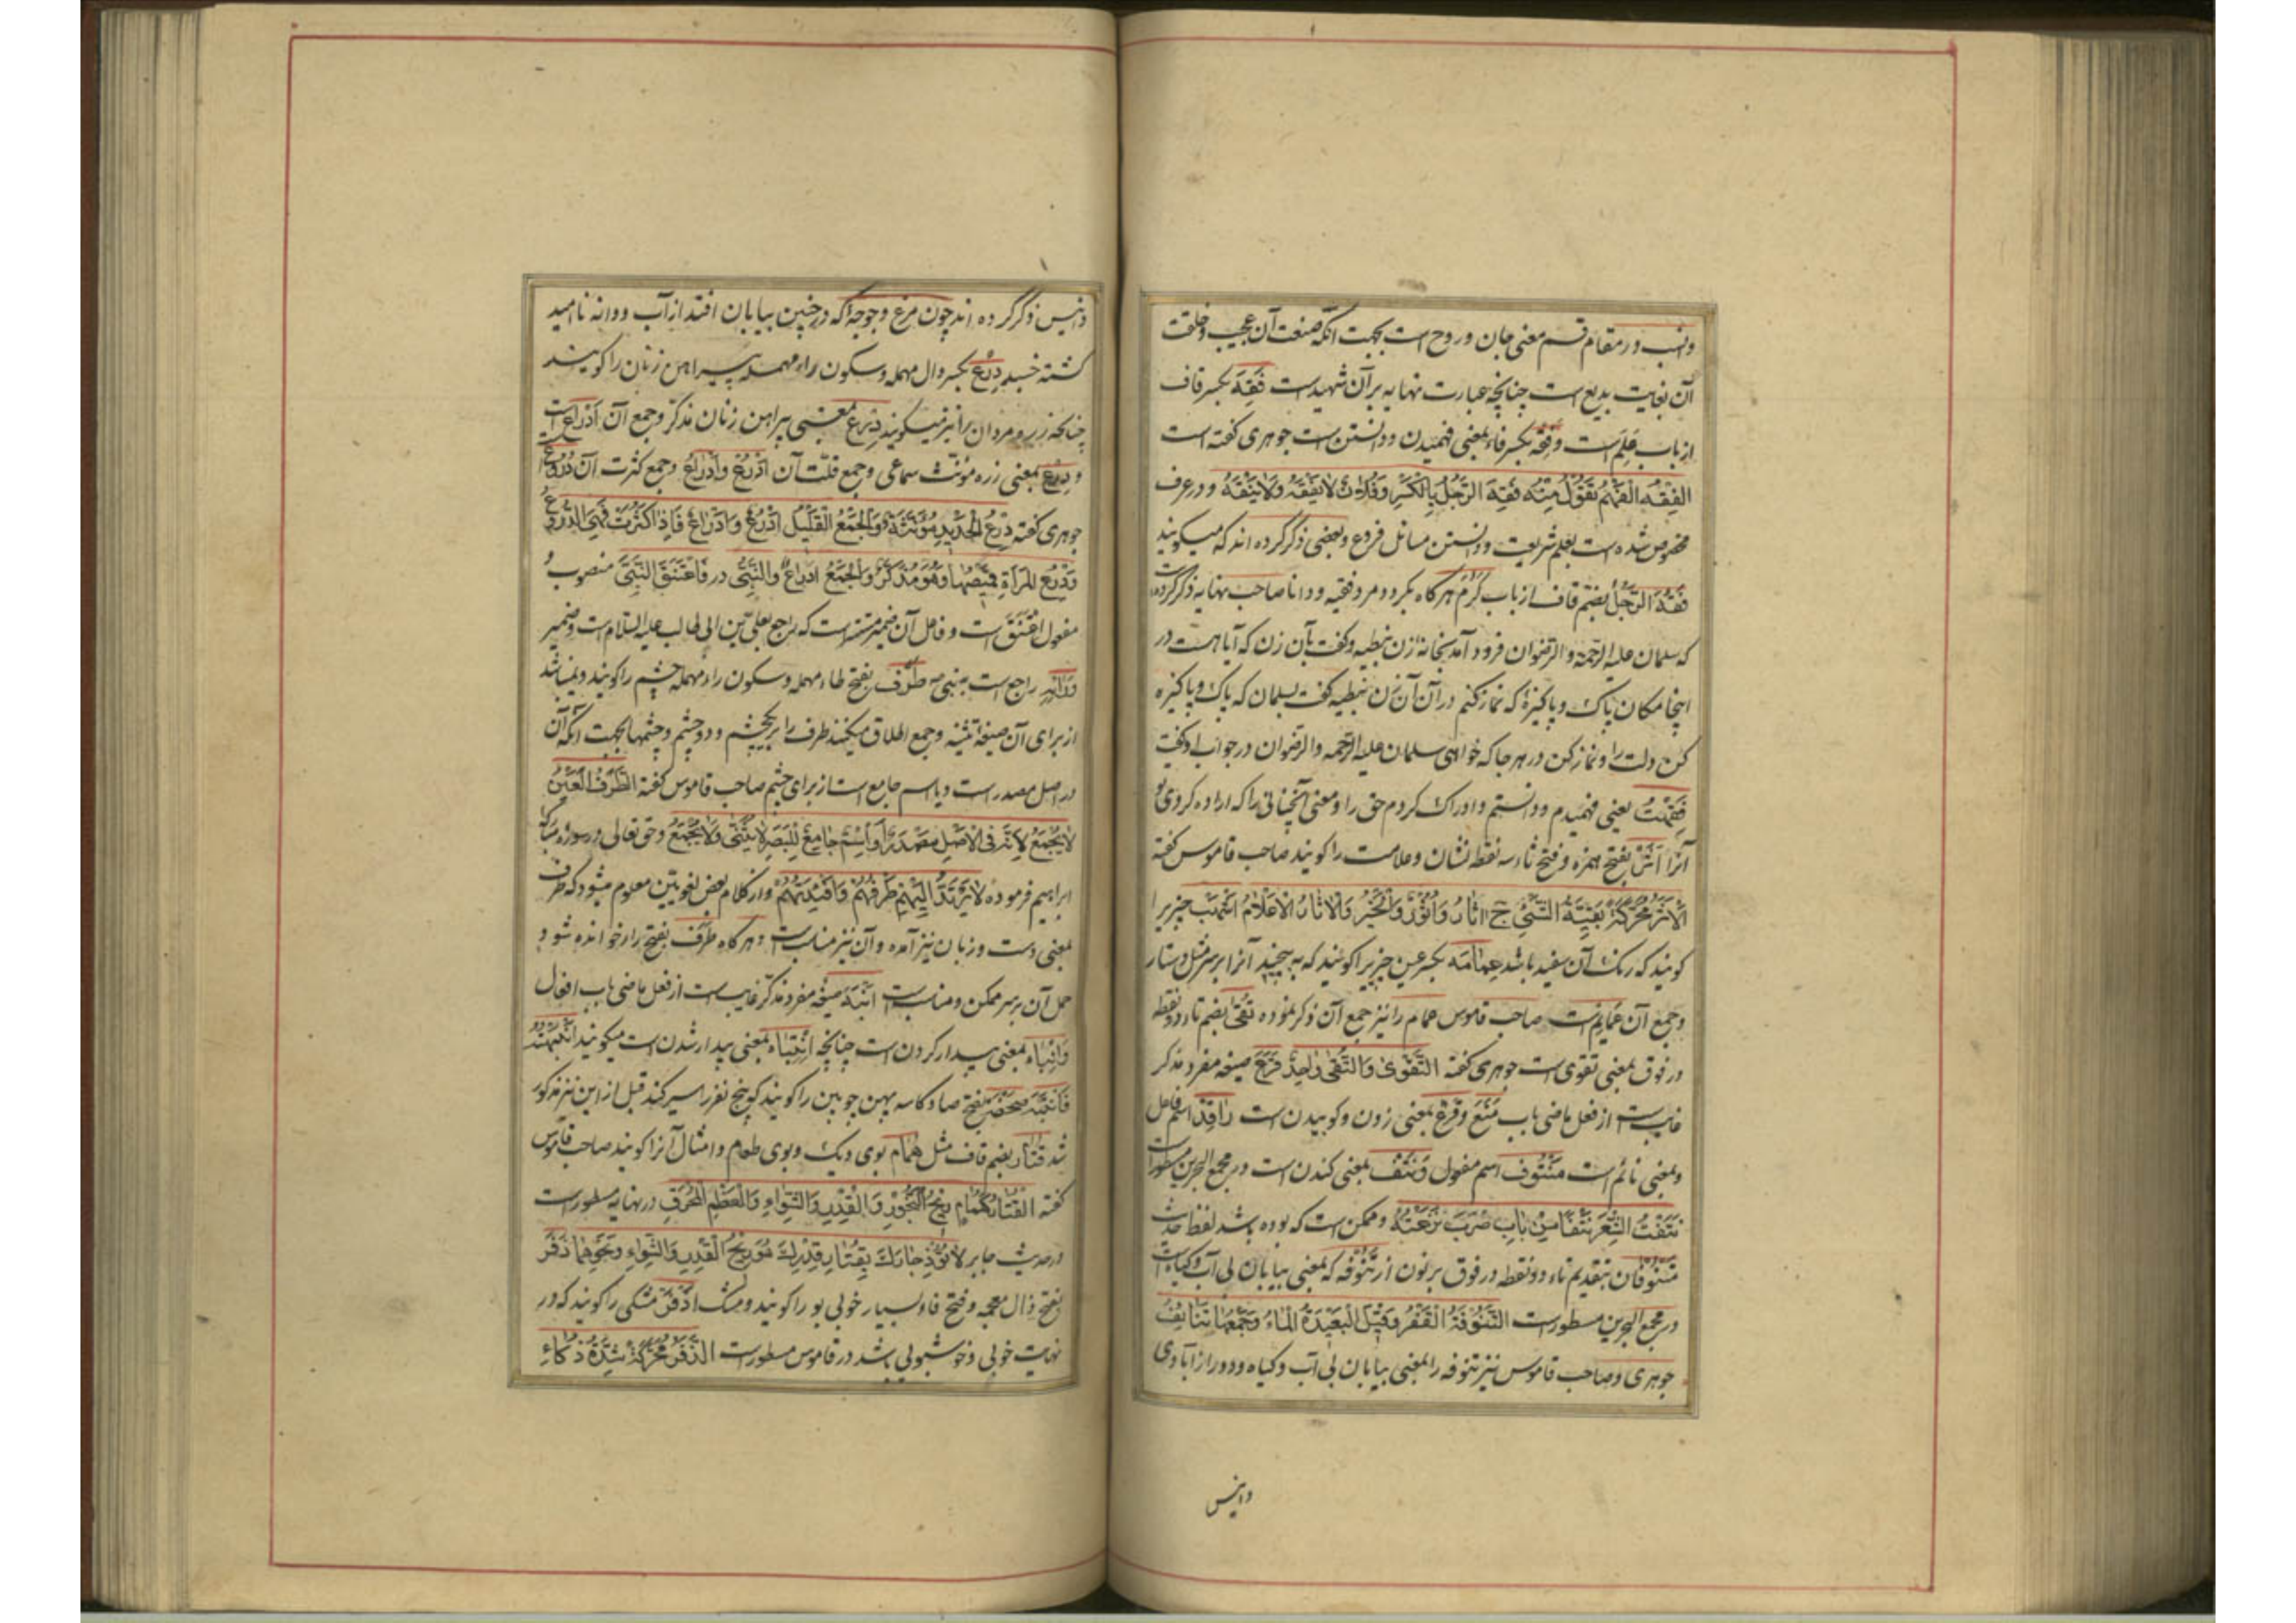 وانسب در مقام قسم معنی جان و روح است بجهت آنکه صنعت آن عجیب و خلقت
آن بغایت بدیع است چنانچه عبارت نهایه بر آن شهیدست فَقِهَ بکسر قاف
از باب عَلِمَ است و فِقْه بکسر فاء بمعنی فهمیدن و دانستن است جوهری گفته است
الفِقْهُ الفَهْمُ تَقُولُ مِنْهُ فَقِهَ الرَّجُلُ بِالْکَسْرِ وَفُلانٌ لا یَفْقَهُ وَلا یَنْقَهُ و در عرف
مخصوص شده است بعلم شریعت و دانستن مسائل فروع و بعضی ذکر کرده اند که میگویند
فَقُهَ الرَّجُلُ بضم قاف از باب کَرُمَ هر گاه بگردد مرد فقیه و دانا صاحب نهایه ذکر کرده است
که سلمان علیه الرحمة والرضوان فرود آمد بخانه زن نبطیه و گفت بآن زن که آیا هست در
اینجا مکان پاک و پاکیزهٔ که نماز کنم در آن آن زن نبطیه گفت بسلمان که پاک و پاکیزه
کن دلت را و نماز کن در هر جا که خواهی سلمان علیه الرحمه والرضوان در جواب او گفت
فَقِهْتُ یعنی فهمیدم و دانستم و ادراک کردم حق را و معنی آنچنانی را که اراده کردی تو
آنرا اَثَر بفتح همزه و فتح ثاء سه نقطه نشان و علامت را گویند صاحب قاموس گفته
الاَثَرُ مُحَرَّکَةً بَقِیَّةُ الشَّیْءِ ج آثارٌ وَ اُثُورٌ وَ الْخَبَرُ وَ الْآثارُ الْاَعْلامُ اَشْهَب چیزیرا
گویند که رنک آن سفید باشد عِمامَه بکسر عین چیزیرا گویند که به پیچند آنرا بر سر مثل دستار
و جمع آن عَمائِم است صاحب قاموس عمام را نیز جمع آن ذکر نموده تُقی بضم تاء دو نقطه
در فوق بمعنی تقوی است جوهری گفته التَّقْوی وَ التُّقی واحِدٌ قَرَعَ صیغه مفرد مذکر
غایب است از فعل ماضی باب مَنَعَ و قَرْع بمعنی زدن و کوبیدن است راقِد اسم فاعل
و بمعنی نائم است مَنْتُوف اسم مفعول وَ نَتْف بمعنی کندن است در مجمع البحرین مسطور است
نَتَفْتُ الشَّعْرَ نَتْفًا مِنْ بابِ ضَرَبَ نَزَعْتُهُ و ممکن است که بوده باشد لفظ حدیث
مَتْنُوفان بتقدیم تاء دو نقطه در فوق بر نون از تَنُوفَه که بمعنی بیابان بی آب و گیاه است
در مجمع البحرین مسطور است التَّنُوفَةُ الْقَفْرُ وَ قِیْلَ الْبَعِیْدَةُ الْماءُ وَ جَمْعُها تَنائِفُ
جوهری و صاحب قاموس نیز تنوفه را بمعنی بیابان بی آب و گیاه و دور از آبادی
و انیس
و انیس ذکر کرده اند چون مرغ و جوجه که در چنین بیابان افتد از آب و دانه ناامید
گشته خسبد دِرْع بکسر دال مهمله و سکون راء مهمله پیراهن زنان را گویند
چنانکه زره مردان را نیز میگویند دِرْع بمعنی پیراهن زنان مذکر و جمع آن اَدْراع است
و دِرْع بمعنی زره مؤنث سماعی و جمع قلت آن اَدْرُع وَ اَدْراع و جمع کثرت آن دُرُوع
جوهری گفته دِرْعُ الْحَدِیدِ مُؤَنَّثَةٌ وَ الْجَمْعُ الْقَلِیْلُ اَدْرُعٌ وَ اَدْراعٌ فَاِذا کَثُرَتْ فَهِیَ الدُّرُوعُ
وَ دِرْعُ الْمَرْأَةِ قَمِیصُها وَ هُوَ مُذَکَّرٌ وَ الْجَمْعُ اَدْراعٌ وَ النَّبِیّ در فَاعْتَنَقَ النَّبِیَّ منصوب
مفعول اعْتَنَقَ است و فاعل آن ضمیر مستتر است که راجع بعلی بن ابی طالب علیه السلام است و ضمیر
راجع است به نبی ص طَرْف بفتح طاء مهمله و سکون راء مهمله چشم را گویند و نمیباشد
از برای آن صیغهٔ تثنیه و جمع اطلاق میکنند طرف را بر یکچشم و دو چشم و چشمها بجهت آنکه آن
در اصل مصدر است و یا اسم جامع است از برای چشم صاحب قاموس گفته الطَّرْفُ الْعَیْنُ
لا یُجْمَعُ لِاَنَّهُ فِی الْاَصْلِ مَصْدَرٌ اَو اِسْمٌ جامِعٌ لِلْبَصَرِ لا یُثَنّی وَ لا یُجْمَعُ و حق تعالی در سوره مبارکه
ابراهیم فرموده لا یَرْتَدُّ اِلَیْهِمْ طَرْفُهُمْ وَ اَفْئِدَتُهُمْ و از کلام بعض لغویین معلوم میشود که طرف
بمعنی دست و زبان نیز آمده و آن نیز مناسب است و هر گاه طَرَف بفتح را خوانده شود
حمل آن بر سر ممکن و مناسب است اَنْبَهَ صیغه مفرد مذکر غایب است از فعل ماضی باب افعال
وَ اِنْباه بمعنی بیدار کردن است چنانچه اِنْتِباه بمعنی بیدار شدن است میگویند اَنْبَهْتُهُ
فَانْتَبَهَ صَحْفَه بفتح صاد کاسه پهن چوبین را گویند کو پنج نفر را سیر کند قبل از این نیز مذکور
شد قُتار بضم قاف مثل هُمام بوی دیک و بوی طعام و امثال آنرا گویند صاحب قاموس
گفته القُتارُ کَهُمامٍ رِیحُ الْبَخُورِ وَ الْقِدْرِ وَ الشِّواءِ وَ الْعَظْمِ الْمُحْرَقِ در نهایه مسطور است
در حدیث جابر لا تُؤْذِ جارَکَ بِقُتارِ قِدْرِکَ هُوَ رِیحُ الْقِدْرِ وَ الشِّواءِ وَ نَحْوِهِما ذَفَر
بفتح ذال معجمه و فتح فاء بسیار خوبی بو را گویند و مسک اَذْفَر مشکی را گویند که در
نهایت خوبی و خوشبوئی باشد در قاموس مسطور است الذَّفَرُ مُحَرَّکَةً شِدَّةُ ذَکاءِ